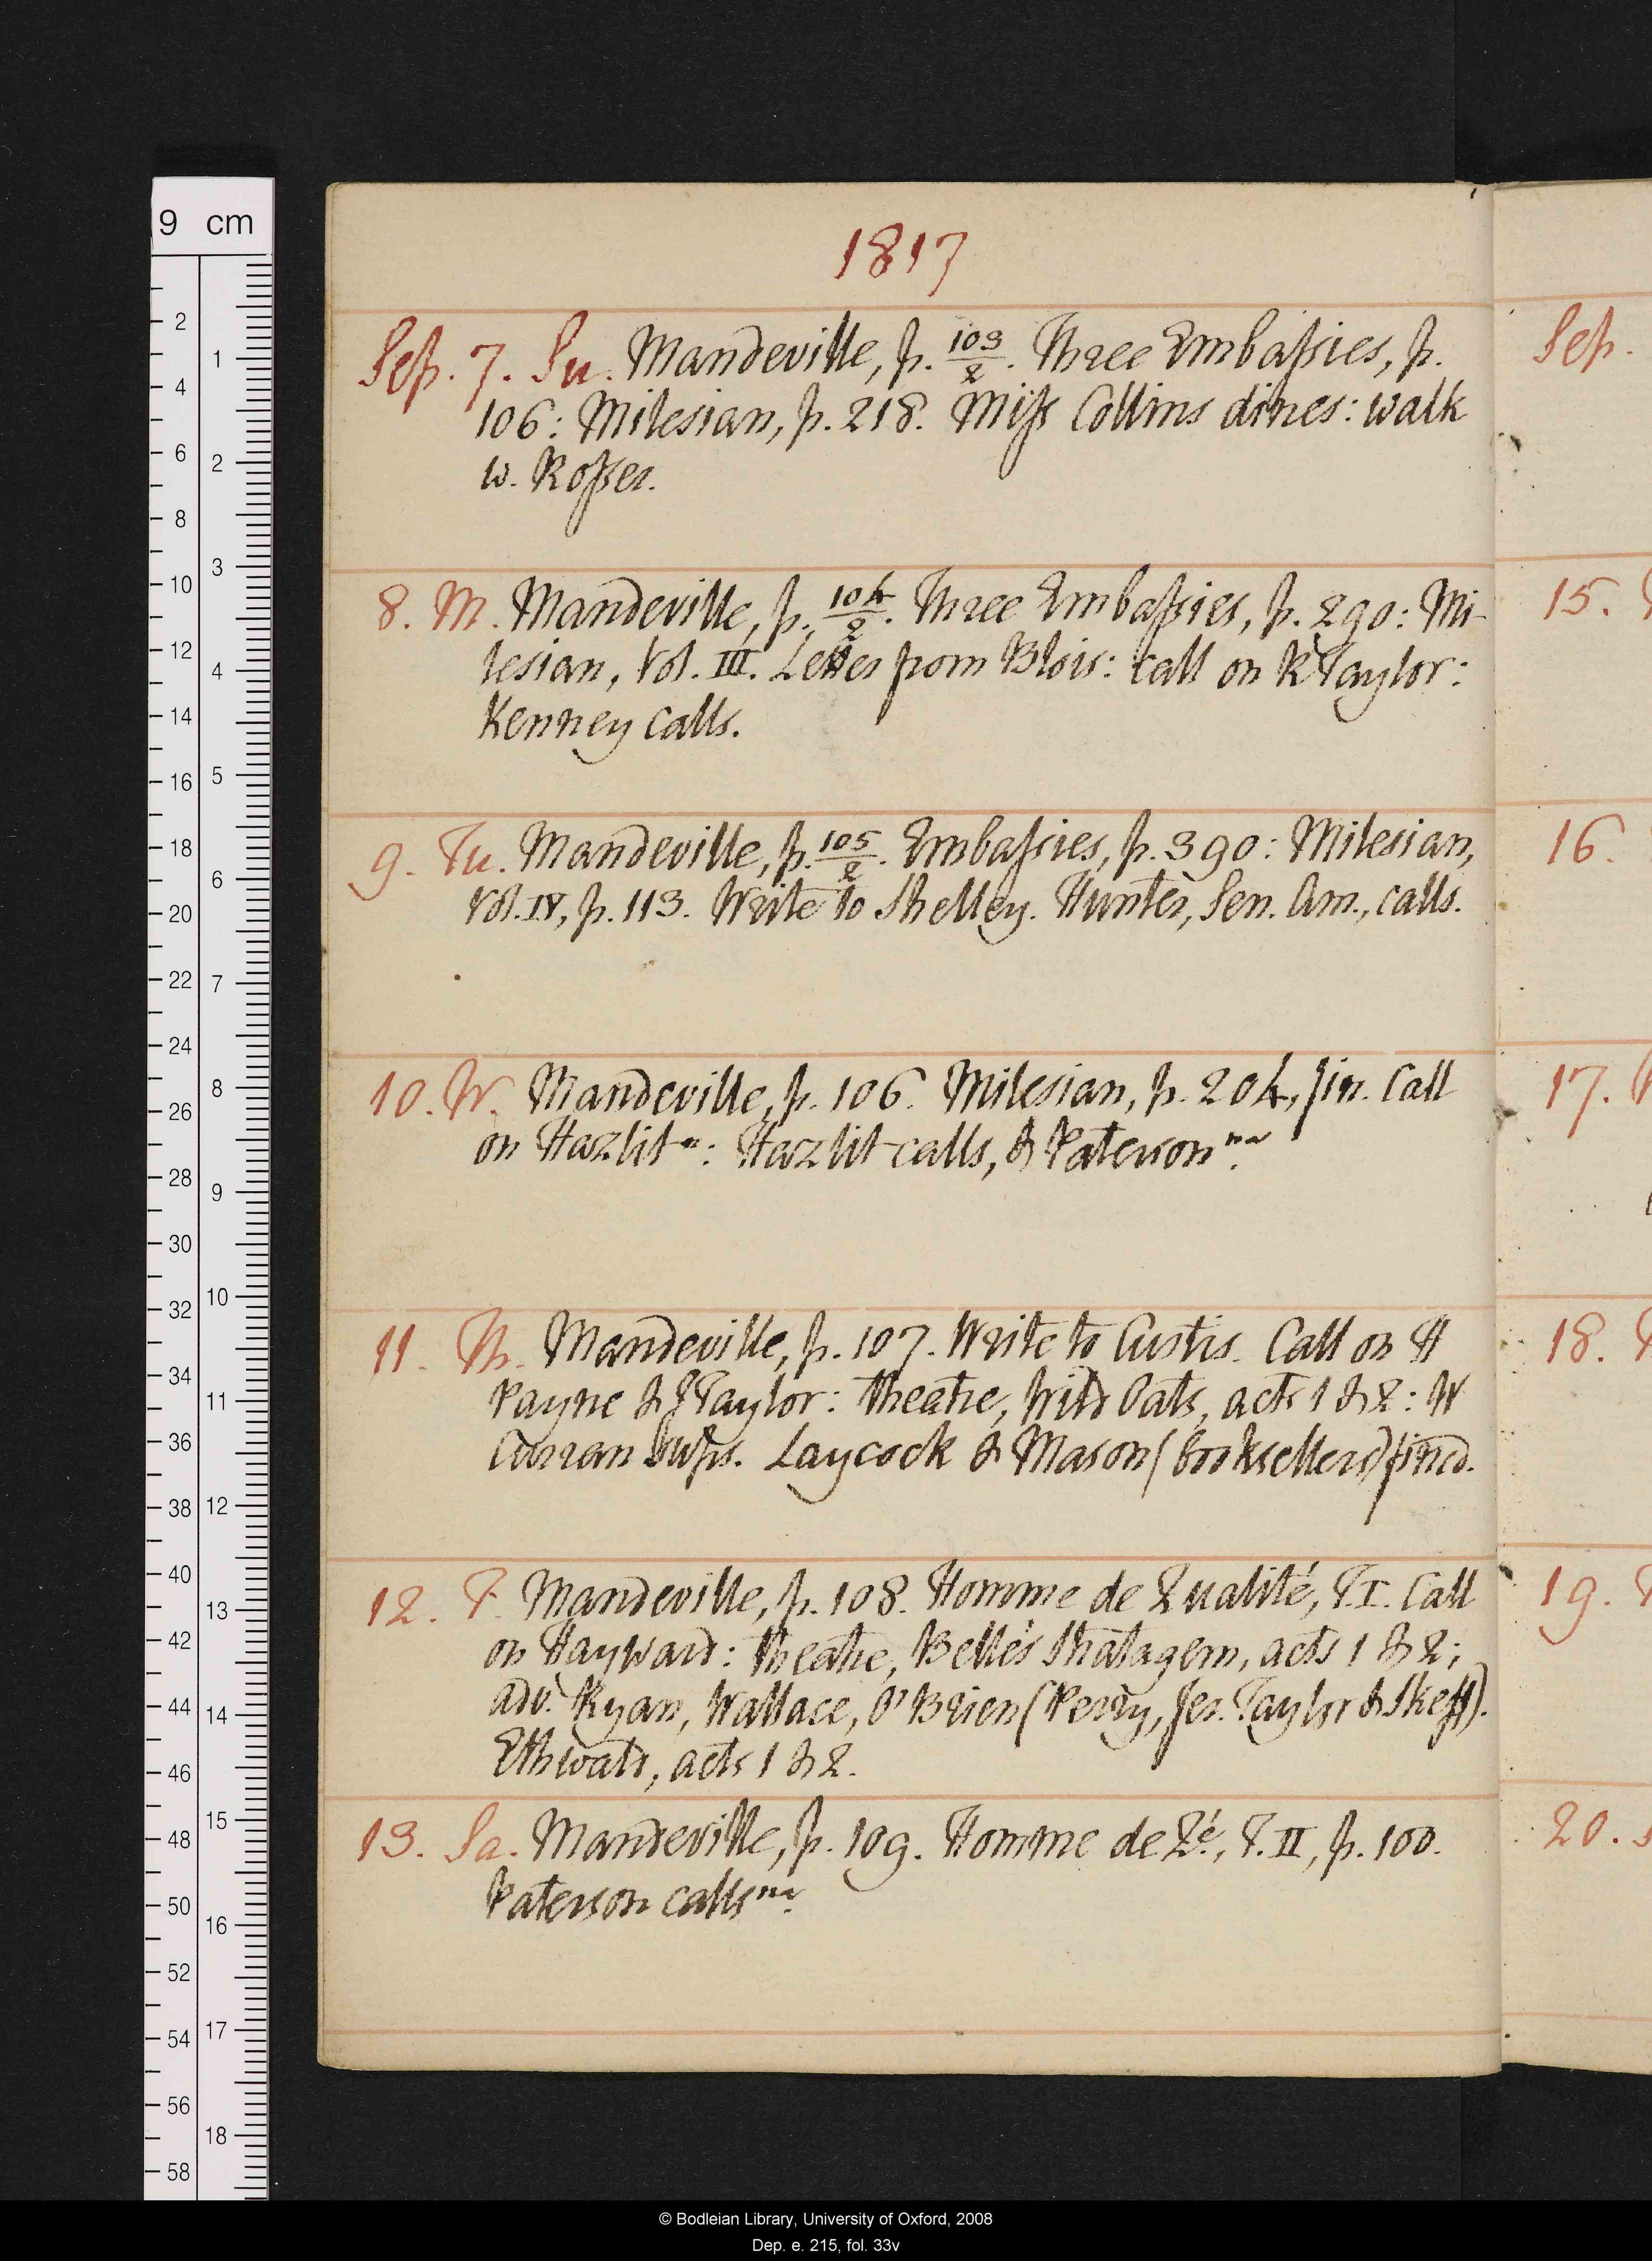 1817
Sep. 7. Su. Mandeville, p. 103/2. Three Embassies, p.
106: Milesian, p. 218. Miss Collins dines: walk
w. Rosser.
8. M. Mandeville, p. 104/2. Three Embassies, p. 290: Mi-
lesian, Vol. III. Letter from Blois: call on R Taylor:
Kenney calls.
9. Tu. Mandeville, p. 105/2. Embassies, p. 390: Milesian,
Vol. IV, p. 113. Write to Shelley. Hunter, Sen. Am., calls.
10. W. Mandeville, p. 106. Milesian, p. 204, fin. Call
on Hazlit n: Hazlit calls, & Paterson na.
11. Th. Mandeville, p. 107. Write to Custis. Call on H
Payne & J Taylor: theatre, Wild Oats, acts 1 & 2: W
Curran sups. Laycock & Mason (booksellers) fined.
12. F. Mandeville, p. 108. Homme de Qualité, T. I. Call
on Hayward: theatre, Belle's Stratagem, acts 1 & 2;
adv. Ryan, Wallace, O'Brien (Perry, Jer. Taylor & Skeff).
Ethwald, acts 1 & 2.
13. Sa. Mandeville, p. 109. Homme de Qé., T. II, p. 100.
Paterson calls na.
Sep.
15.
16.
17.
18.
19.
20.
9 cm
2
4
6
8
10
12
14
16
18
20
22
24
26
28
30
32
34
36
38
40
42
44
46
48
50
52
54
56
58
1
2
3
4
5
6
7
8
9
10
11
12
13
14
15
16
17
18
© Bodleian Library, University of Oxford, 2008
Dep. e. 215, fol. 33v